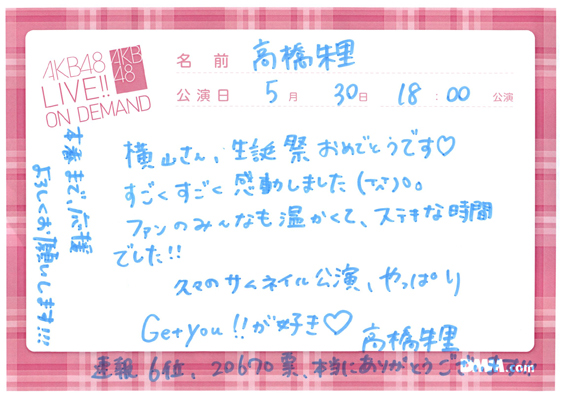 AKB48
LIVE!!
ON DEMAND
AKB
48
名前 高橋朱里
公演日 5月 30日 18:00 公演
横山さん、生誕祭おめでとうです♡
すごくすごく感動しました(T^T)。
ファンのみんなも温かくて、ステキな時間
でした!!
久々のサムネイル公演、やっぱり
Get you!!が好き♡ 高橋朱里
速報6位、20670票、本当にありがとうございます!!
本番まで、応援
よろしくお願いします!!!
.com